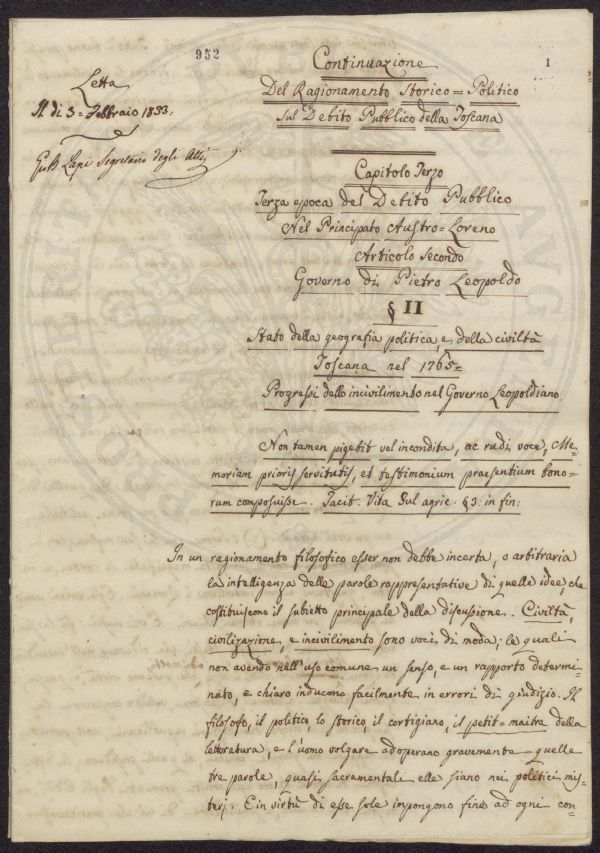 952
1
Letta
Il dì 3 = Febbraio 1833:
Gio.B. Lapi Segretario degli Atti
Continuazione
Del Ragionamento Storico = Politico
sul Debito Pubblico della Toscana
Capitolo Terzo
Terza epoca del Debito Pubblico
Nel Principato Austro = Loreno
Articolo Secondo
Governo di Pietro Leopoldo
§ II
Stato della geografia politica, e della civiltà
Toscana nel 1765 =
Progressi dello incivilimento nel Governo Leopoldiano.
Non tamen pigebit vel incondita, ac rudi voce, Me=
moriam prioris servitutis, et testimonium praesentium bono=
rum composuisse. Tacit. Vita Iul agric. § 3. in fin:
In un ragionamento filosofico esser non debbe incerta, o arbitraria
la intelligenza delle parole rappresentative di quelle idee, che
costituiscono il subietto principale della discussione. Civiltà,
civilizazione, e incivilimento sono voci di moda; le quali
non avendo nell'uso comune un senso, e un rapporto determi=
nato, e chiaro inducono facilmente in errori di giudizio. Il
filosofo, il politico, lo storico, il cortigiano, il petit = maitre della
letteratura, e l'uomo volgare adoperano gravemente quelle
tre parole, quasi sacramentali elle siano nei politici mis=
terj. E in virtù di esse sole impongono fine ad ogni con=